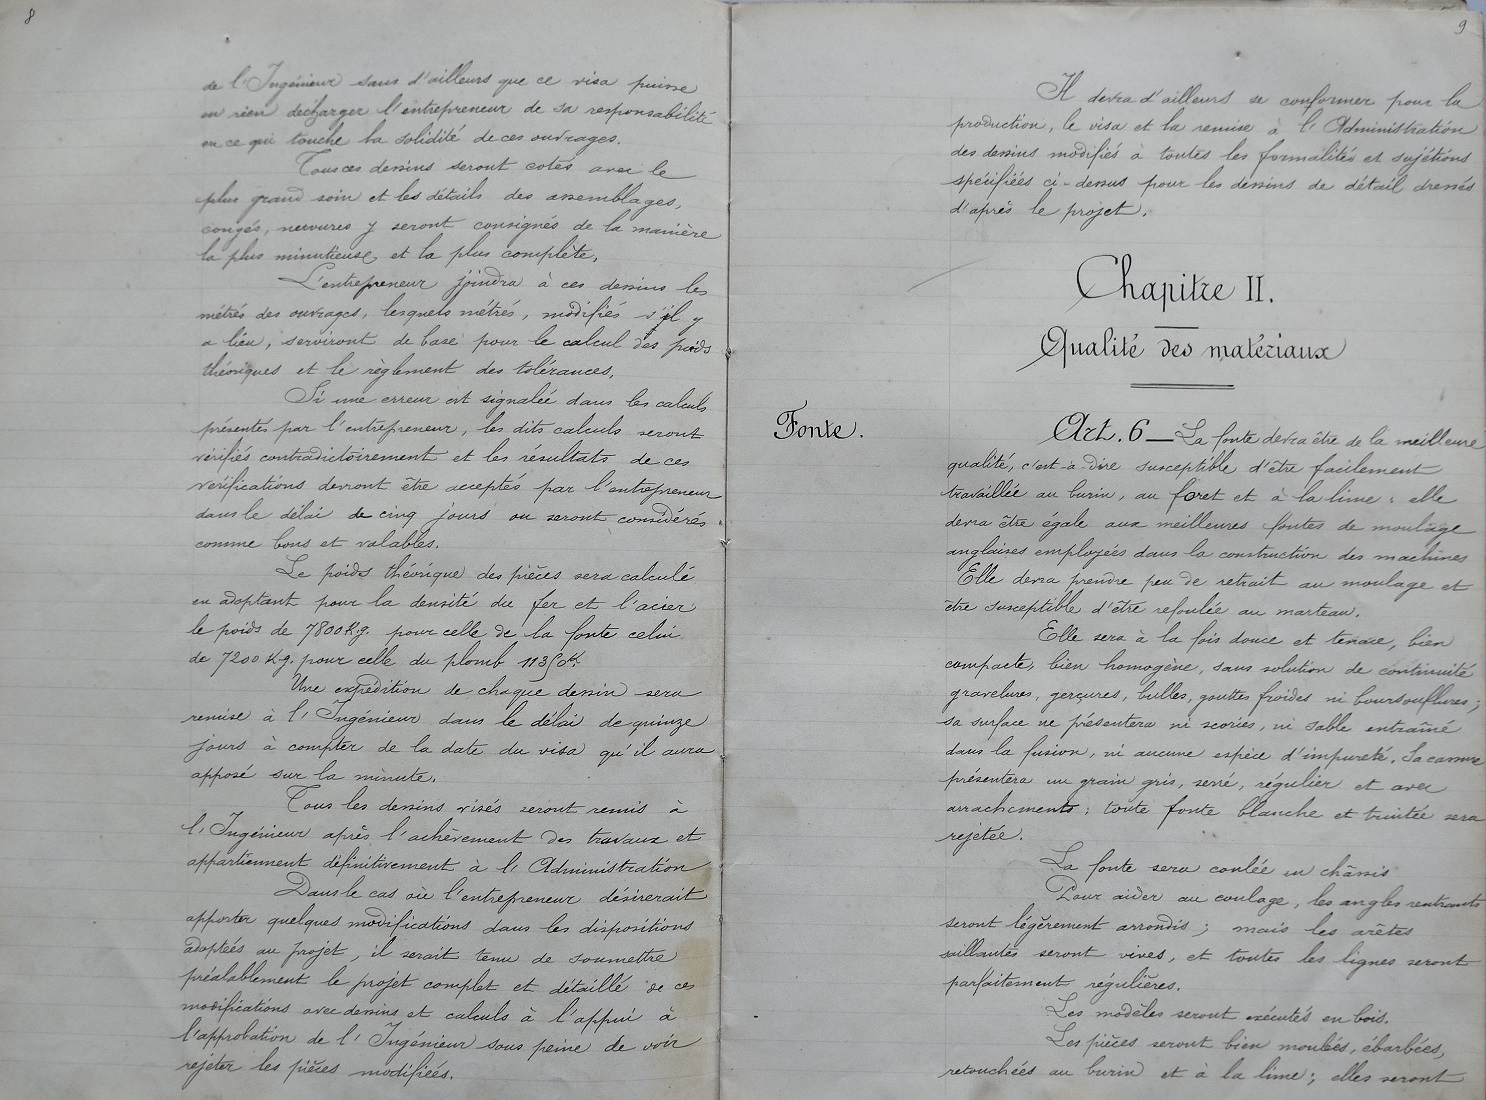 8
de l'Ingénieur sans d'ailleurs que ce visa puisse
en rien decharger l'entrepreneur de sa responsabilité
en ce qui touche la solidité de ces ouvrages.
Tous ces dessins seront cotés avec le
plus grand soin et les détails des assemblages,
congés, nervures y seront consignés de la manière
la plus minutieuse et la plus complète.
L'entrepreneur joindra à ces dessins les
métrés des ouvrages, lesquels métrés, modifiés s'il y
a lieu, serviront de base pour le calcul des poids
théoriques et le règlement des tolérances.
Si une erreur est signalée dans les calculs
présentés par l'entrepreneur, les dits calculs seront
vérifiés contradictoirement et les résultats de ces
vérifications devront être acceptés par l'entrepreneur
dans le délai de cinq jours ou seront considérés
comme bons et valables.
Le poids théorique des pièces sera calculé
en adoptant pour la densité du fer et l'acier
le poids de 7800 Kg. pour celle de la fonte celui
de 7200 Kg. pour celle du plomb 11350 K.
Une expédition de chaque dessin sera
remise à l'Ingénieur dans le délai de quinze
jours à compter de la date du visa qu'il aura
apposé sur la minute.
Tous les dessins visés seront remis à
l'Ingénieur après l'achèvement des travaux et
appartiennent définitivement à l'Administration
Dans le cas où l'entrepreneur désirerait
apporter quelques modifications dans les dispositions
adoptées au projet, il serait tenu de soumettre
préalablement le projet complet et détaillé de ces
modifications avec dessins et calculs à l'appui à
l'approbation de l'Ingénieur sous peine de voir
rejeter les pièces modifiées.
9
Il devra d'ailleurs se conformer pour la
production, le visa et la remise à l'Administration
des dessins modifiés à toutes les formalités et sujétions
spécifiées ci-dessus pour les dessins de détail dressés
d'après le projet.
Chapitre II.
Qualité des matériaux
Fonte.
Art. 6 — La fonte devra être de la meilleure
qualité, c'est-à-dire susceptible d'être facilement
travaillée au burin, au foret et à la lime : elle
devra être égale aux meilleures fontes de moulage
anglaises employées dans la construction des machines
Elle devra prendre peu de retrait au moulage et
être susceptible d'être refoulée au marteau.
Elle sera à la fois douce et tenace, bien
compacte, bien homogène, sans solution de continuité
gravelures, gerçures, bulles, gouttes froides ni boursouflures ;
sa surface ne présentera ni scories, ni sable entraîné
dans la fusion, ni aucune espèce d'impureté. Sa cassure
présentera un grain gris, serré, régulier et avec
arrachements : toute fonte blanche et truitée sera
rejetée.
La fonte sera coulée en châssis
Pour aider au coulage, les angles rentrants
seront légèrement arrondis ; mais les arêtes
saillantes seront vives, et toutes les lignes seront
parfaitement régulières.
Les modèles seront exécutés en bois.
Les pièces seront bien moulées, ébarbées,
retouchées au burin et à la lime ; elles seront